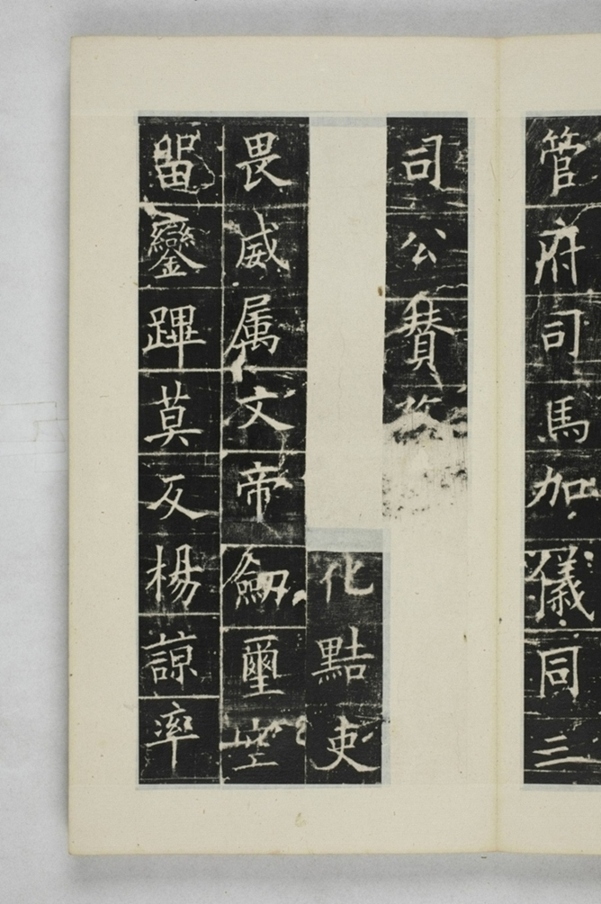 管府司馬加儀同三
司公賛
化黠吏
畏威属文帝劒璽空
留鑾蹕莫反楊諒率